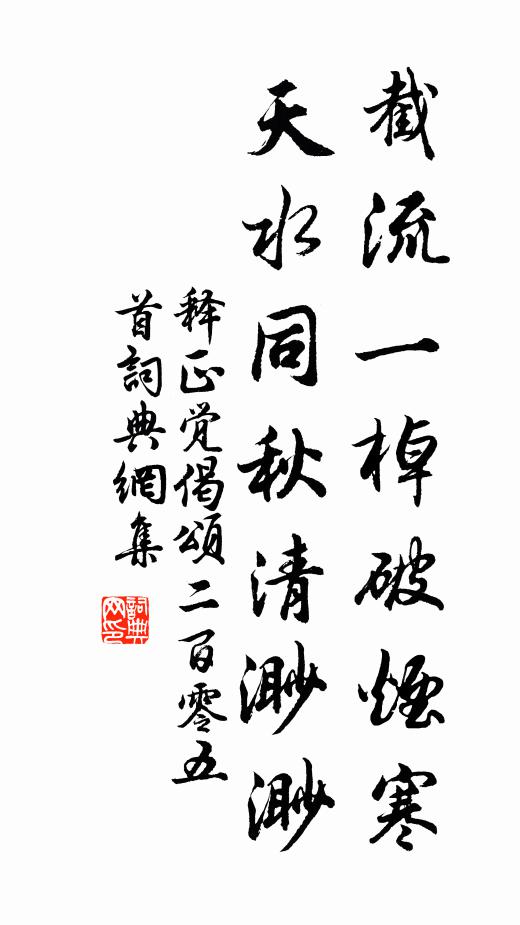 截流一棹破煙寒
天水同秋清渺渺
释正觉偈頌二百零五
首詞典網集
詞典
网印